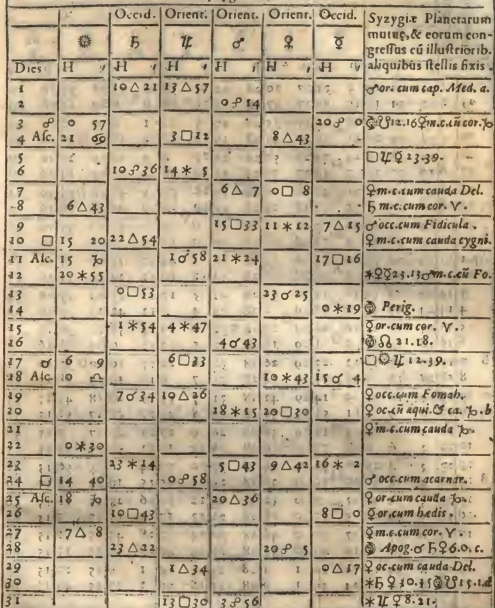 Occid. Orient. Orient. Orient. Occid. Syzygiæ Planetarum
mutuę, & eorum con-
☼ ♄ ♃ ♂ ♀ ☿ gressus cū illustriorib.
aliquibus stellis fixis.
Dies H ʹ H ʹ H ʹ H ʹ H ʹ H ʹ
1 10△21 13△57 ♂ or. cum cap. Med. a.
2 0☍14
3 ☍ 0 57 20☍0 ☋12.16 ♀ m.c.cū cor.♑
4 Asc. 21 3□12 8△43
5 □♃♀23.39.
6 10☍36 14✶5
7 6△7 0□8 ♀ m.c.cum cauda Del.
8 6△43 ♄ m.c.cum cor. ♈.
9 15□33 11✶12 7△15 ♂ occ.cum Fidicula.
10 □ 15 20 22△54 ♀ m.c.cum cauda cygni.
11 Asc. 15 ♑ 1☌58 21✶24 17□16
12 20✶55 ✶♀☿23.13 ♂ m.c.cū Fo.
13 0□53 23☌25
14 0✶39 Perig.
15 1✶54 4✶47 ☿ or.cum cor. ♈.
16 4☌43 ☊ 21.18.
17 ☌ 6 9 6□33 □☼♃12.39.
18 Asc. 0 ♎ 10✶43 15☌4
19 7☌34 19△26 ♀ occ.cum Fomah.
20 18✶15 20□30 ♀ oc.cū aqui. & ca. ♑.b
21 ♀ m.c.cum cauda ♑.
22 0✶30
23 23✶14 5□43 9△42 16✶2
24 □ 14 40 0☍58 ♂ occ.cum acarnar.
25 Asc. 18 ♑ 20△36 ♀ or.cum cauda ♑.
26 10□43 8□0 ☿ or.cum hædis.
27 7△8 ♀ m.c.cum cor. ♈.
28 23△22 20☍5 Apog. ☌♄♀6.0.c.
29 1△34 0△17 ♀ oc.cum cauda Del.
30 ✶♄☿10.35 ☋15.1.d
31 13□30 3☍56 ✶♃♀8.21.